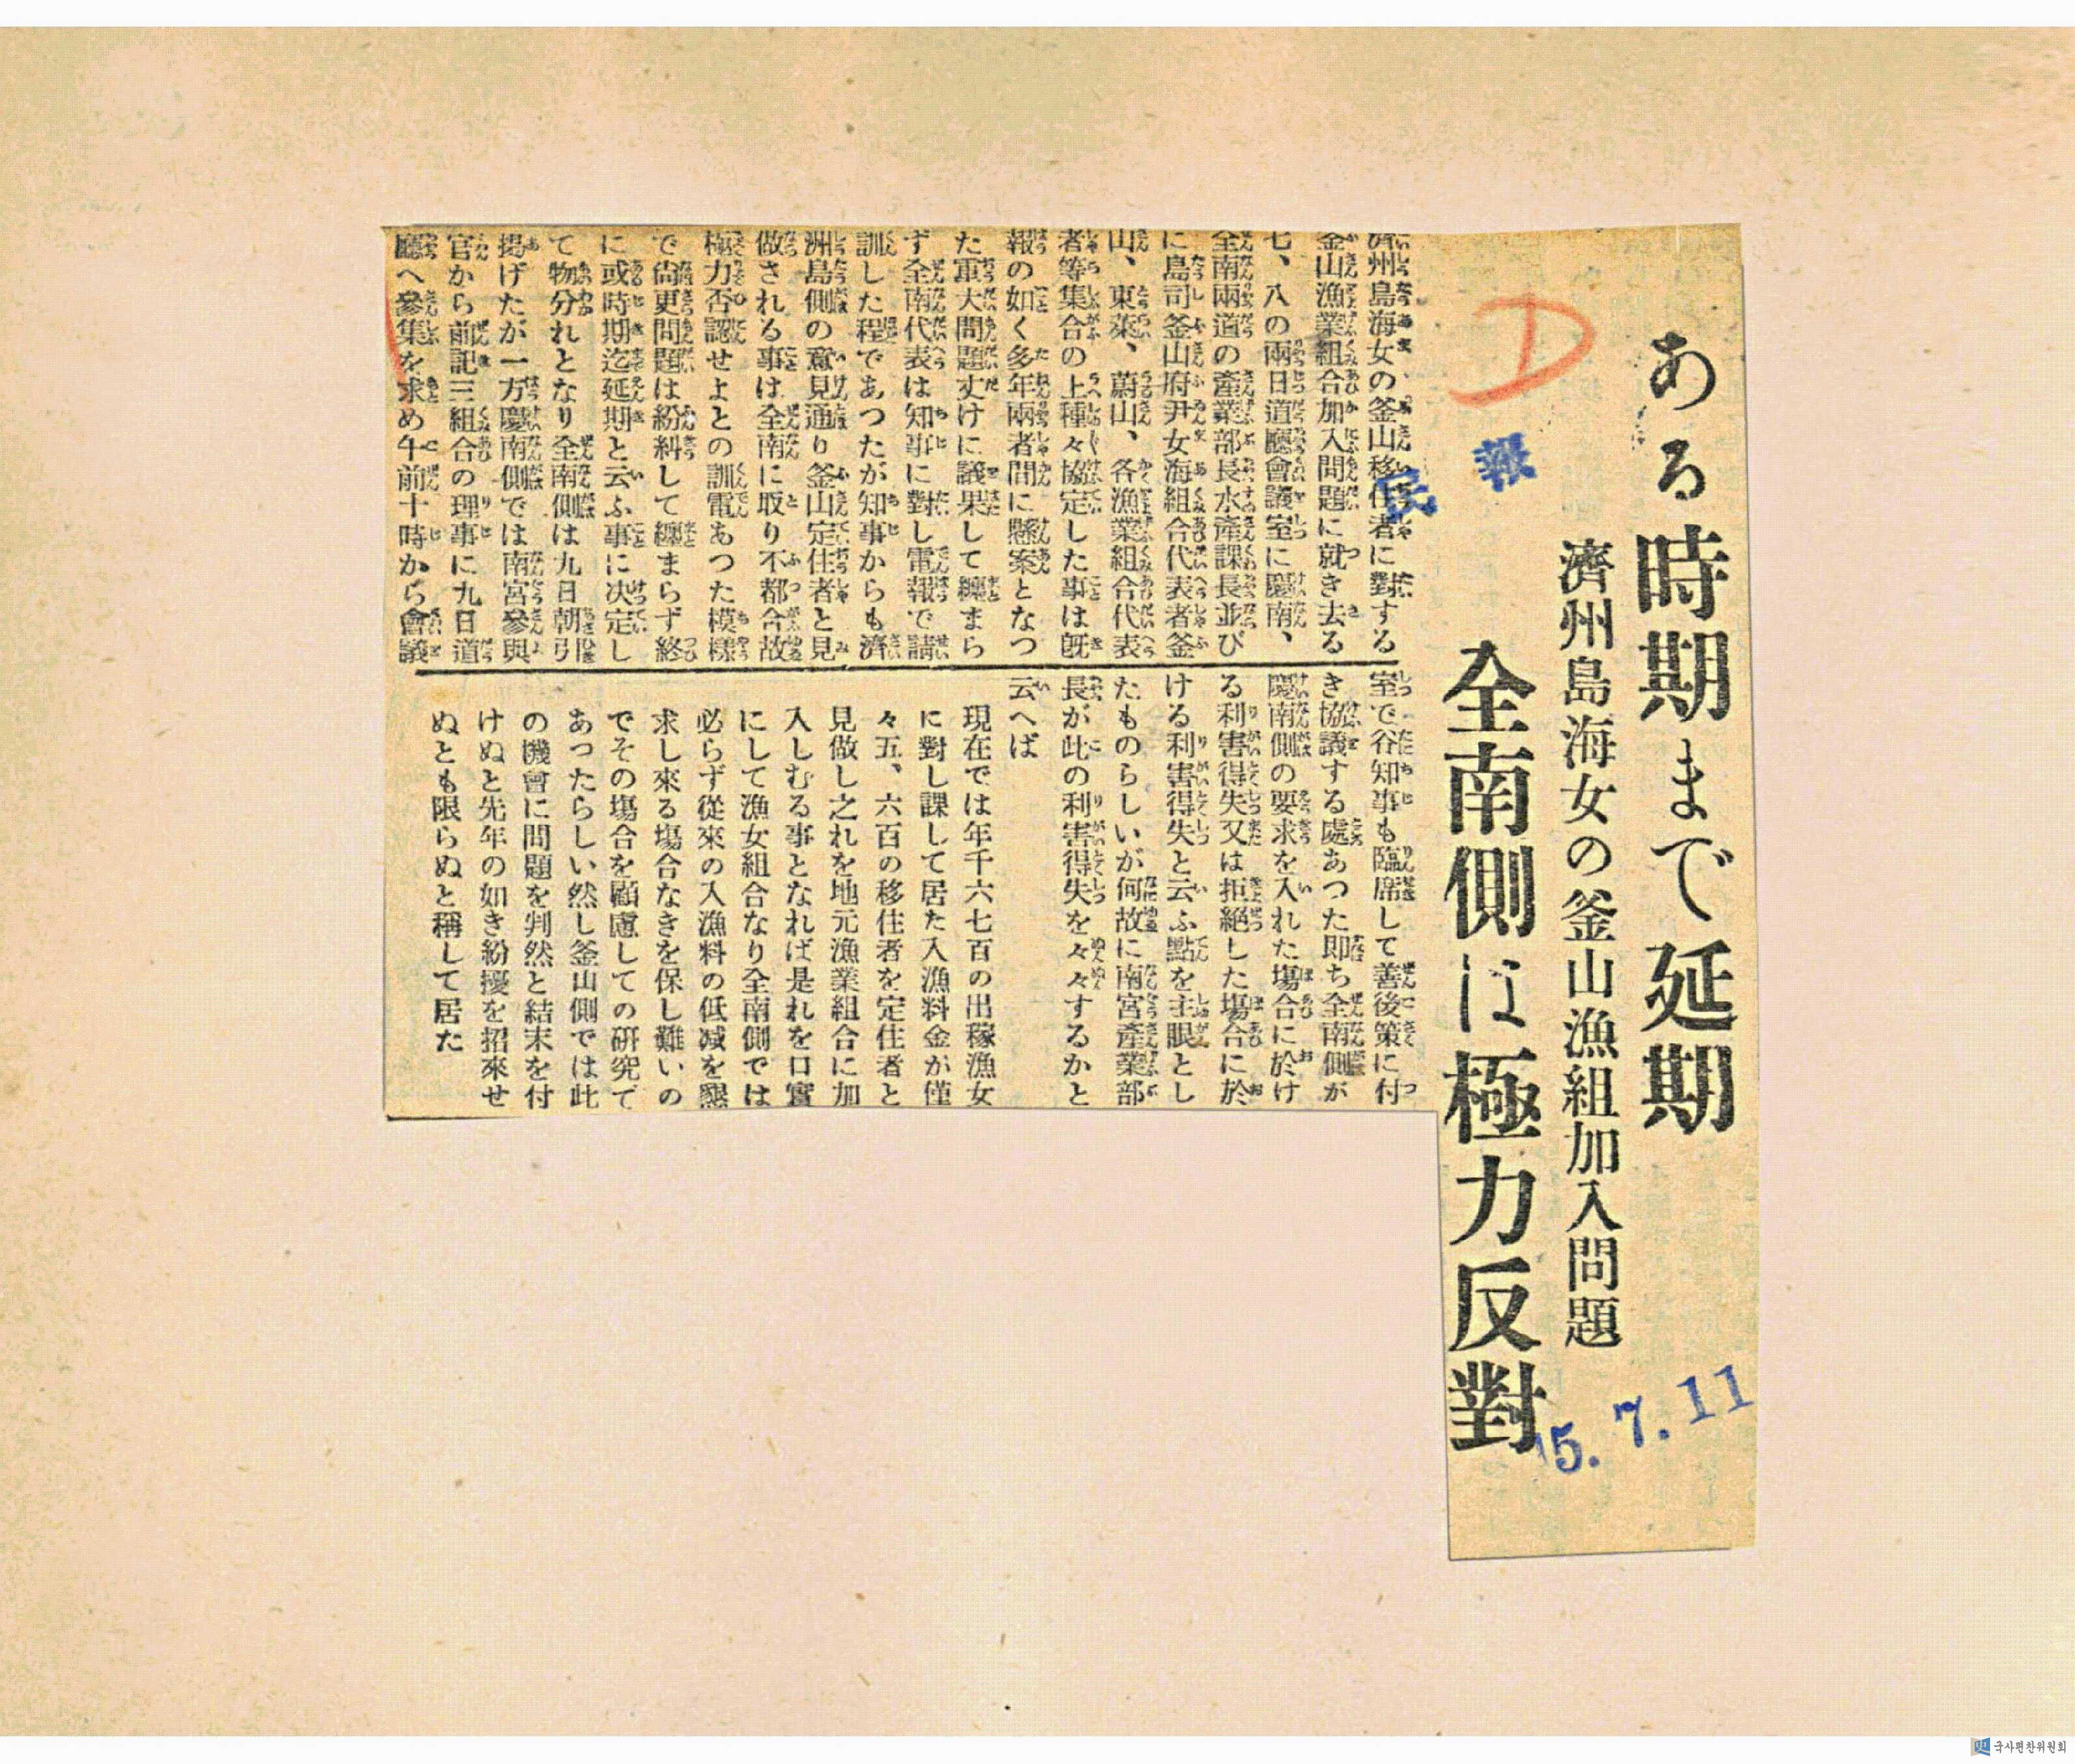 ある時期まで延期
濟州島海女の釜山漁組加入問題
全南側は極力反對
D
民報
15.7.11
濟州島海女の釜山移住者に對する
釜山漁業組合加入問題に就き去る
七、八の兩日道廳會議室に慶南、
全南兩道の產業部長水產課長並び
に島司釜山府尹女海組合代表者釜
山、東萊、蔚山、各漁業組合代表
者等集合の上種々協定した事は旣
報の如く多年兩者間に懸案となつ
た重大問題丈けに議果して纏まら
ず全南代表は知事に對し電報で請
訓した程であつたが知事からも濟
洲島側の意見通り釜山定住者と見
做される事は全南に取り不都合故
極力否認せよとの訓電あつた模樣
で尙更問題は紛糾して纏まらず終
に或時期迄延期と云ふ事に決定し
て物分れとなり全南側は九日朝引
揚げたが一方慶南側では南宮參與
官から前記三組合の理事に九日道
廳へ參集を求め午前十時から會議
室で谷知事も臨席して善後策に付
き協議する處あつた卽ち全南側が
慶南側の要求を入れた場合に於け
る利害得失又は拒絕した場合に於
ける利害得失と云ふ點を主眼とし
たものらしいが何故に南宮產業部
長が此の利害得失を々々するかと
云へば
現在では年千六七百の出稼漁女
に對し課して居た入漁料金が僅
々五、六百の移住者を定住者と
見做し之れを地元漁業組合に加
入しむる事となれば是れを口實
にして漁女組合なり全南側では
必らず從來の入漁料の低減を懇
求し來る場合なきを保し難いの
でその場合を顧慮しての硏究で
あつたらしい然し釜山側では此
の機會に問題を判然と結末を付
けぬと先年の如き紛擾を招來せ
ぬとも限らぬと稱して居た
국사편찬위원회